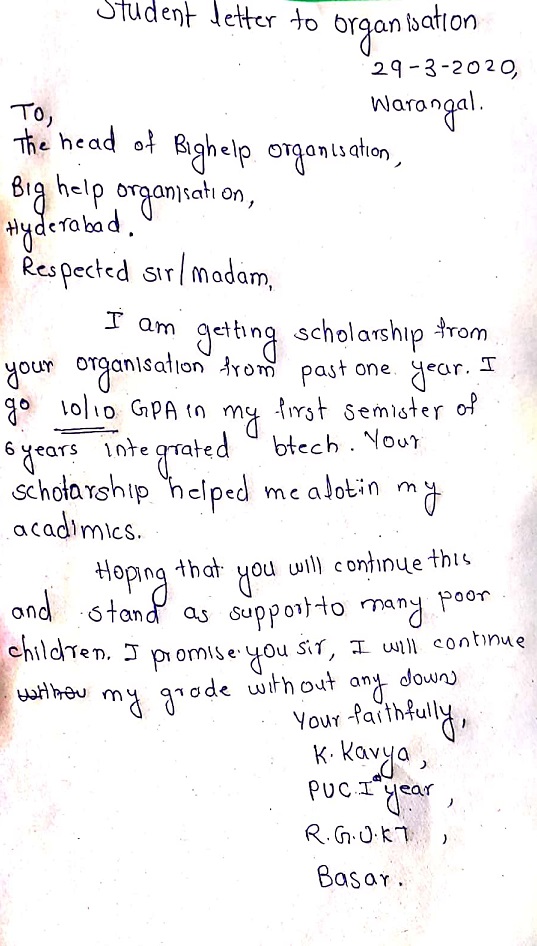 Student letter to organisation
29-3-2020,
Warangal.
To,
The head of Bighelp organisation,
Big help organisation,
Hyderabad.
Respected sir/madam,
I am getting scholarship from
your organisation from past one year. I
go 10/10 GPA in my first semister of
6 years integrated btech. Your
scholarship helped me alot in my
acadimics.
Hoping that you will continue this
and stand as support to many poor
children. I promise you sir, I will continue
my grade without any down
Your faithfully,
K. Kavya,
PUC Ist year,
R.G.U.K.T,
Basar.